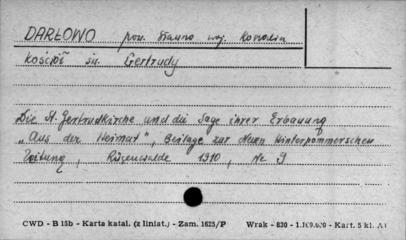 DARŁOWO pow. Sławno woj. Koszalin
kościół św. Gertrudy
Die St. Gertrudkirche und die Sage ihrer Erbauung
„Aus der Heimat", Beilage zur Neuen Hinterpommerschen
Zeitung, 1910, Nr 9
CWD - B 15b - Karta katal. (z liniat.) - Zam. 1625/P Wrak - 830 - Kart. 5 kl. A1